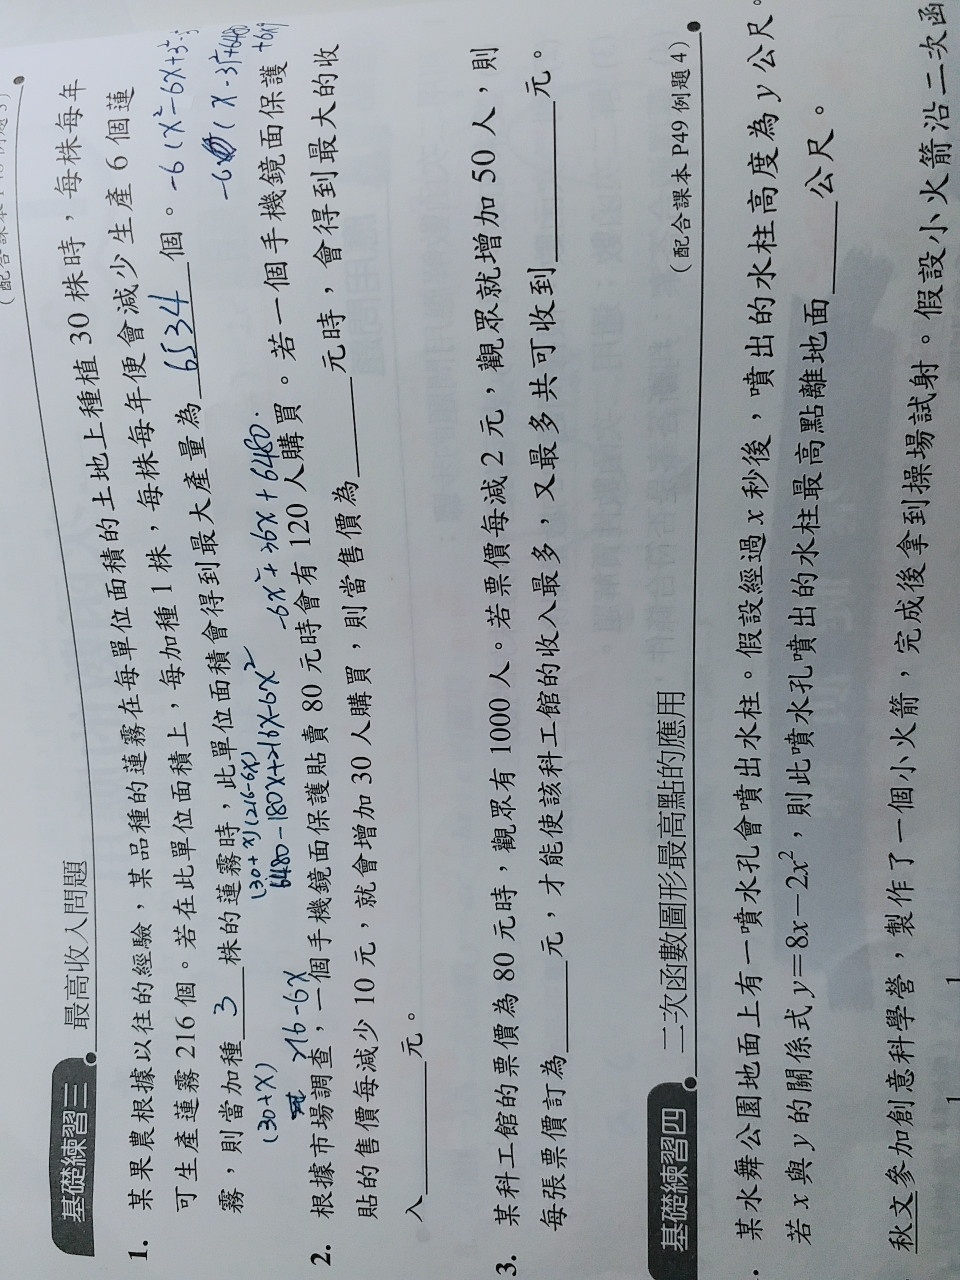 基礎練習三 最高收入問題
1. 某果農根據以往的經驗,某品種的蓮霧在每單位面積的土地上種植 30 株時,每株每年
可生產蓮霧 216 個。若在此單位面積上,每加種 1 株,每株每年便會減少生產 6 個蓮
霧,則當加種 3 株的蓮霧時,此單位面積會得到最大產量為 6534 個。
-6(x²-6x+3²-3²
(x-3)²+6480
(30+x)(216-6x)
6480-180x+216x-6x²
-6x²+36x+6480.
(30+x)
216-6x
2. 根據市場調查,一個手機鏡面保護貼賣 80 元時會有 120 人購買。若一個手機鏡面保護
貼的售價每減少 10 元,就會增加 30 人購買,則當售價為 元時,會得到最大的收
入 元。
3. 某科工館的票價為 80 元時,觀眾有 1000 人。若票價每減 2 元,觀眾就增加 50 人,則
每張票價訂為 元,才能使該科工館的收入最多,又最多共可收到 元。
基礎練習四 二次函數圖形最高點的應用 (配合課本 P49 例題 4)
某水舞公園地面上有一噴水孔會噴出水柱。假設經過 x 秒後,噴出的水柱高度為 y 公尺。
若 x 與 y 的關係式 y=8x-2x²,則此噴水孔噴出的水柱最高點離地面 公尺。
秋文參加創意科學營,製作了一個小火箭,完成後拿到操場試射。假設小火箭沿二次函